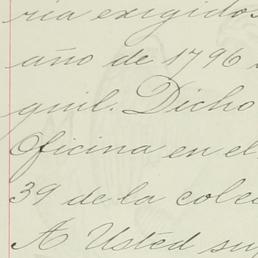 ria exigidos
año de 1796
guil. Dicho
Oficina en el
39 de la cole
A Usted su